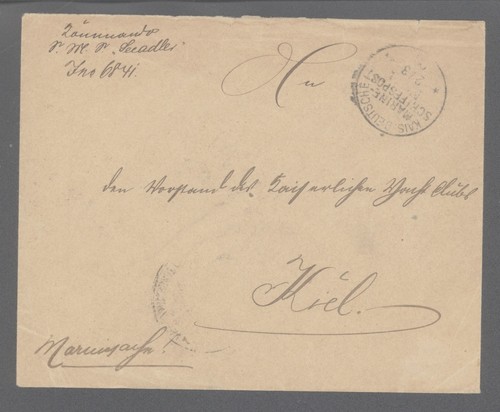 Kommando
S. M. S. „Seeadler"
An
KAIS. DEUTSCHE
MARINE-
SCHIFFSPOST
den Vorstand des Kaiserlichen Yacht Clubs
Kiel.
Marinesache!